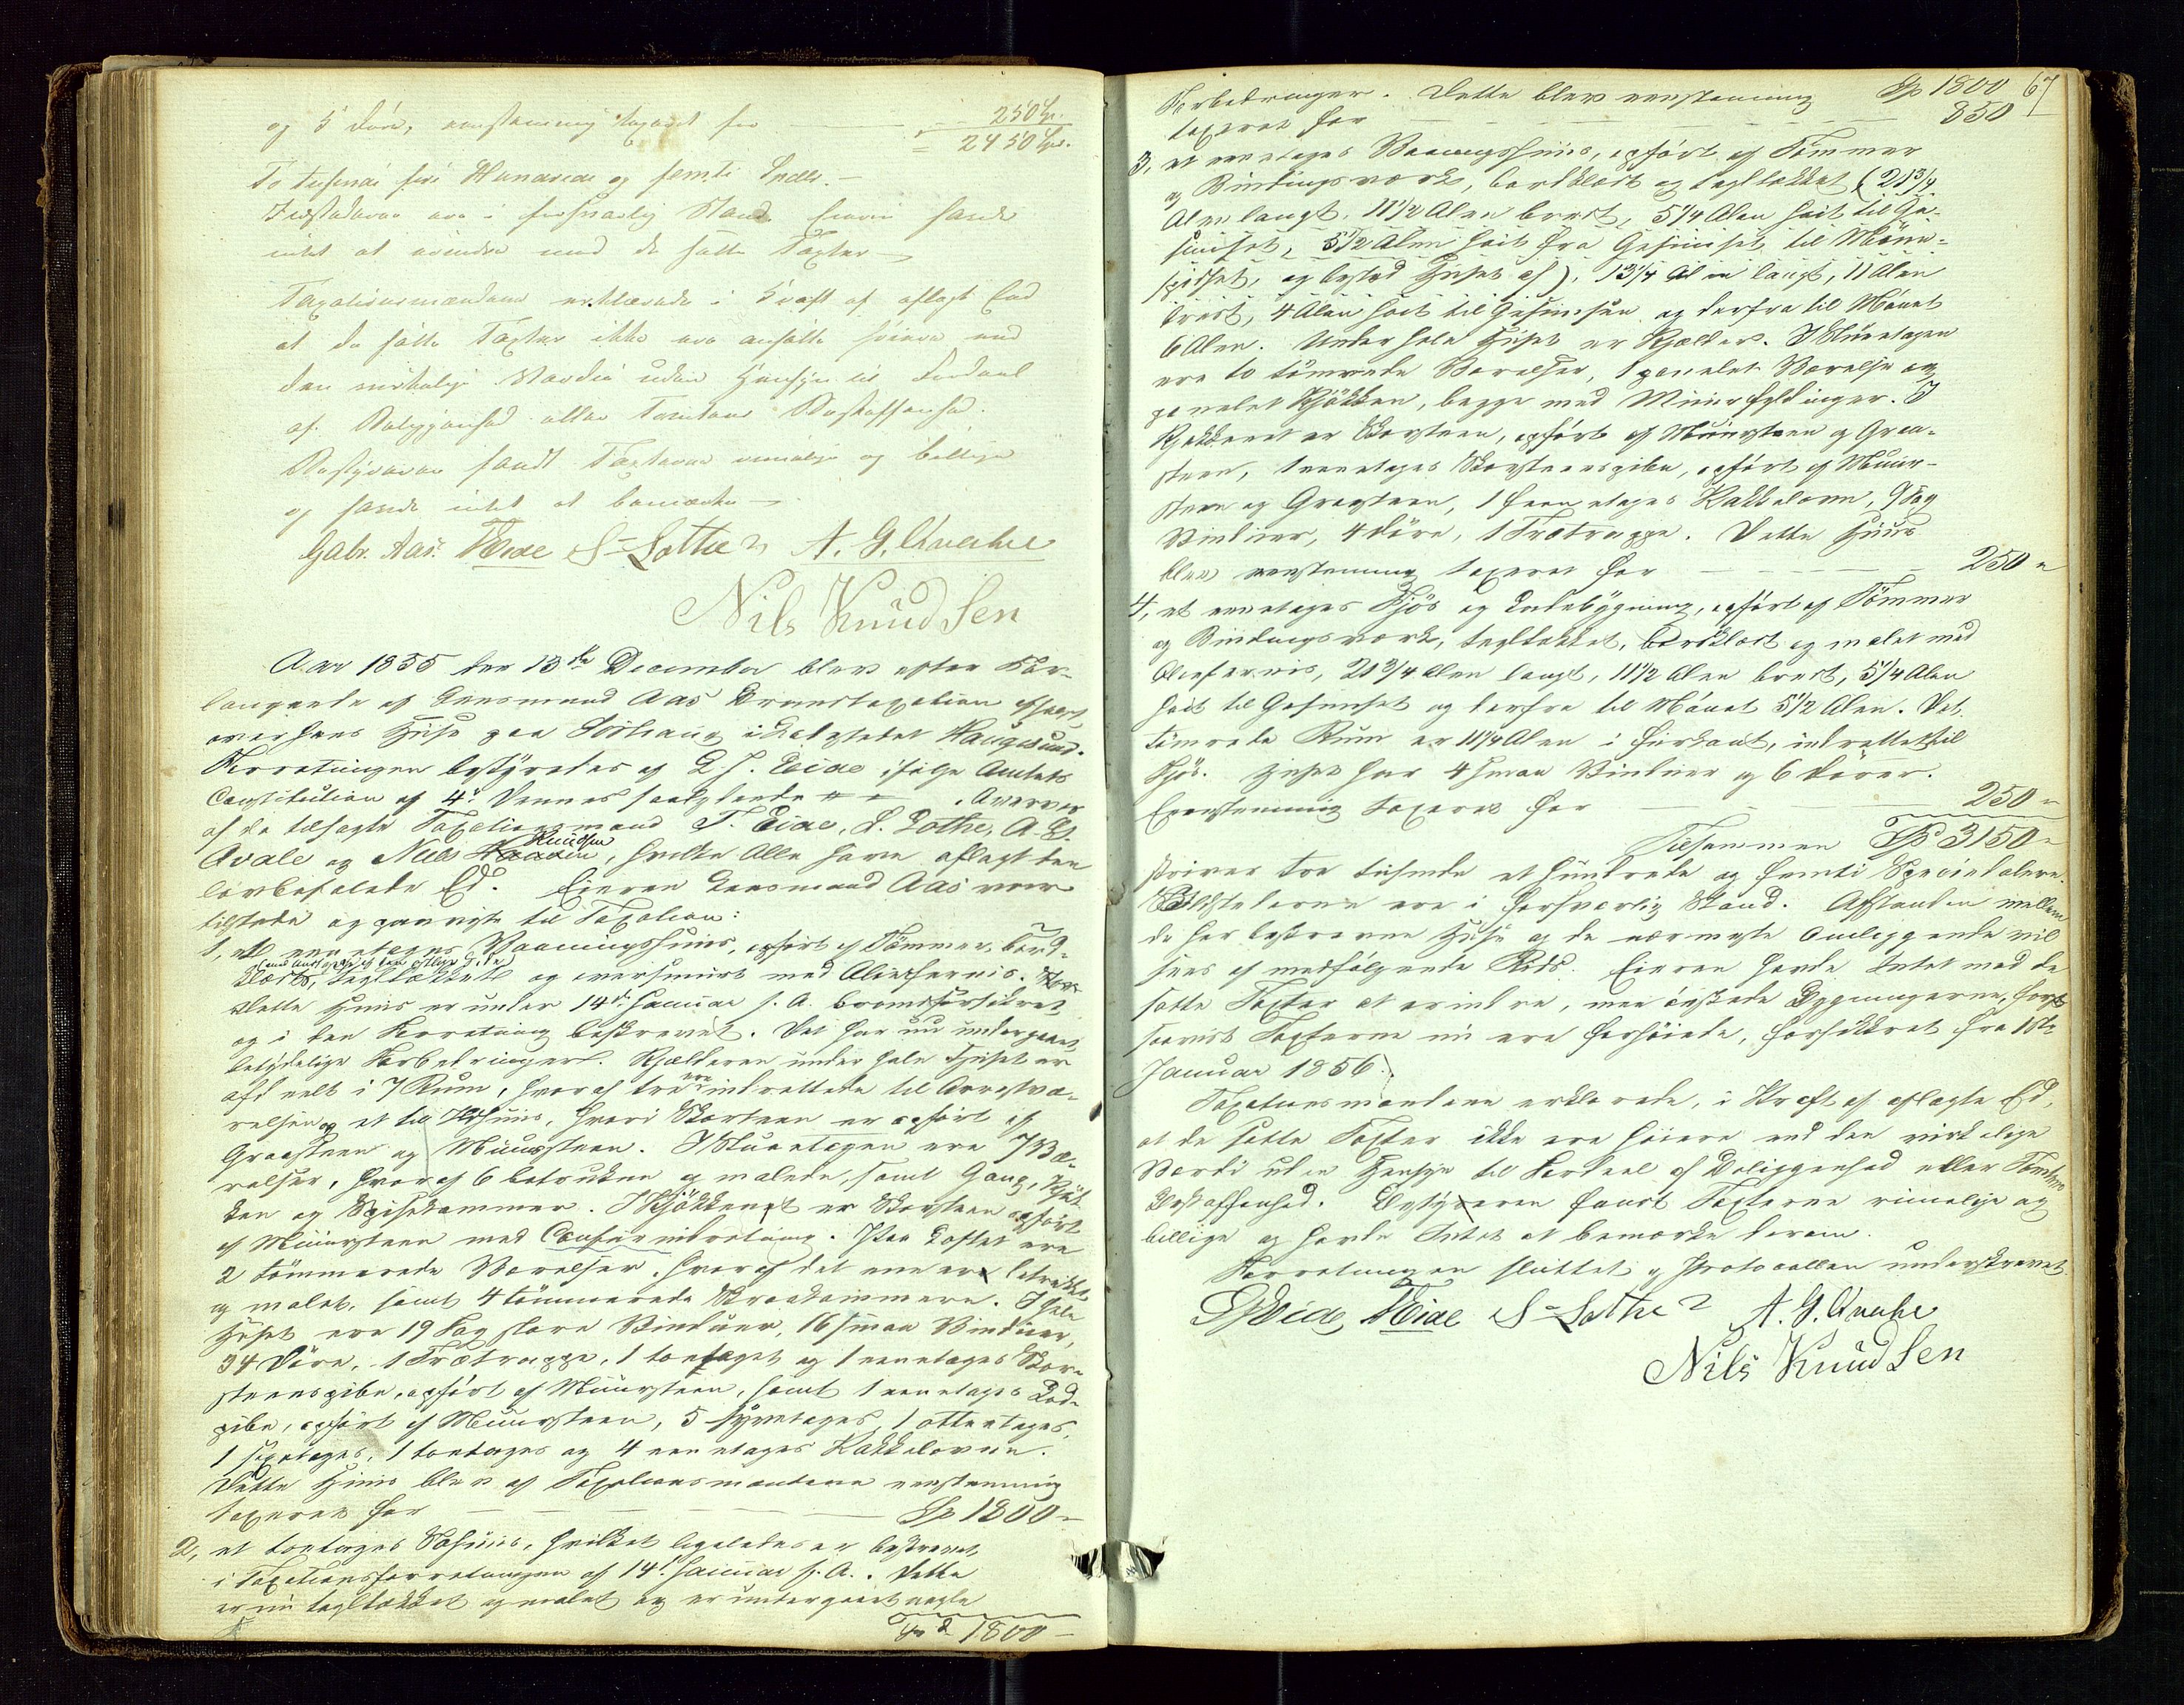 og 5 döre, eenstemmig taxeret for 250 Sp.
= 2450 Sp.
To tusende fire Hundrede og femti Spdlr. —
Ildstederne ere i forsvarlig Stand. Eieren havde
intet at erindre mod de satte Taxter —
Taxationsmændene erklærede i Kraft af aflagt Eed
at de satte Taxter ikke ere ansatte høiere end
den virkelige Værdie uden Hensyn til Fordeel
af Beliggenhed eller Tomtens Beskaffenhed.
Bestyreren fandt Taxterne rimelige og billige
og havde intet at bemærke —
Gabr. Aas. T Eide S= Lothe A. G. Qvale
Nils Knudsen
Aar 1855 den 13de December blev efter For-
langende af Lensmand Aas Brandtaxation afholdt
over hans Huse paa Sörhaug i Ladestedet Haugesund.
Forretningen bestyredes af L J. Eide ifølge Amtets
Constitution af 4de Dennes
af de tilsagte Taxationsmænd T. Eide, S. Lothe, A. G.
Qvale og Niels Knudsen, hvilke Alle have aflagt den
lovbefalede Ed. Eieren Lensmand Aas var
tilstede og paaviste til Taxation:
1, et eenetages Vaaningshuus, opført af Tömmer, bord-
klædt, tegltækket og overstrøget med Oliefernis.
Dette Huus er under 14de Januar f. A. brandforsikret
og i den Forretning beskrevet. Det har nu undergaaet
betydelige Forbedringer. Kjælderen under hele Huset er
afdeelt i 7 Rum, hvoraf tre ere indrettede til Arrestvæ-
relser og et til Ildhuus, hvori Skorsteen er opført af
Graasteen og Muursteen. I Stueetagen ere 7 Væ-
relser, hvoraf 6 betrukne og malede, samt Gang, Kjök-
ken og Spisekammer. I Kjökkenet er Skorsteen opført
af Muursteen med Comfurindretning. Paa Loftet ere
2 tömmerede Værelser, hvoraf det ene er betrukket
og malet, samt 4 tömmerede Kammere. I hele
Huset ere 19 Fag store Vinduer, 16 smaa Vinduer,
34 Döre, 1 Trætrappe, 1 toetages og 1 eenetages Skor-
steenspibe, opført af Muursteen, samt 1 eenetages
pibe, opført af Muursteen, 5 syvetages, 1 otteetages,
1 sexetages, 1 toetages og 4 eenetages Kakkelovne.
Dette Huus blev af Taxationsmændene eenstemmig
taxeret for — Sp 1800 "
2, et toetages Söhuus, hvilket ligeledes er beskrevet
i Taxationsforretningen af 14de Januar f. A. Dette
er nu tegltækket og malet og er undergaaet nogle
Sp 1800 —
67
Forbedringer. Dette blev eenstemmig Sp 1800
taxeret for — 850
3, et eenetages Vaaningshuus, opført af Tömmer
og Bindingsværk, bordklædt og tegltækket (21 3/4
Alen langt, 11 1/2 Alen bredt, 5 1/4 Alen höit til Ge-
simset, 5 1/2 Alen höit fra Gesimset til Möne-
spidset, og bestod Huset af), 13 1/4 Alen langt, 11 Alen
bredt, 4 Alen höit til Gesimsen og derfra til Mönet
6 Alen. Under hele Huset er Kjælder. I Stueetagen
ere to tömrede Værelser, 1 panelet Værelse og
panelet Kjökken, begge med Muurfyldinger. I
Kjökkenet er Skorsteen, opført af Muursteen og Graa-
steen, 1 eenetages Skorsteenspibe, opført af Muur-
steen og Graasteen, 1 fleeretages Kakkelovn, 9 Fag
Vinduer, 4 Döre, 1 Trætrappe. Dette Huus
blev eenstemmig taxeret for — 250 "
4, et eenetages Fjös og Ladebygning, opført af Tömmer
og Bindingsværk, tegltækket, bordklædt og malet med
Oliefernis, 21 3/4 Alen langt, 11 1/2 Alen bredt, 5 1/4 Alen
höit til Gesimset og derfra til Mönet 5 1/2 Alen. Det
tömrede Rum er 11 1/4 Alen i Fiirkant, indrettet til
Fjös. Huset har 4 smaa Vinduer og 6 Dörer.
Eenstemmig taxeret for — 250 "
Tilsammen Sp 3150 "
skriver tre tusinde et hundrede og femti Speciedalere.
Ildstederne ere i forsvarlig Stand. Afstanden mellem
de her beskrevne Huse og de nærmeste Omliggende vil
sees af medfølgende Rids. Eieren havde Intet mod de
satte Taxter at erindre, men önskede Bygningerne,
saavidt Taxterne nu ere forhöiede, forsikkret fra 1ste
Januar 1856.
Taxationsmændene erklærede, i Kraft af aflagte Ed,
at de satte Taxter ikke ere höiere end den virkelige
Værdi uden Hensyn til Fordeel af Beliggenhed eller Tomtens
Beskaffenhed. Bestyreren fandt Taxterne rimelige og
billige og havde Intet at bemærke derom.
Forretningen sluttet og Protocollen underskrevet.
LJEide, T Eide S= Lothe A. G. Qvale
Nils Knudsen